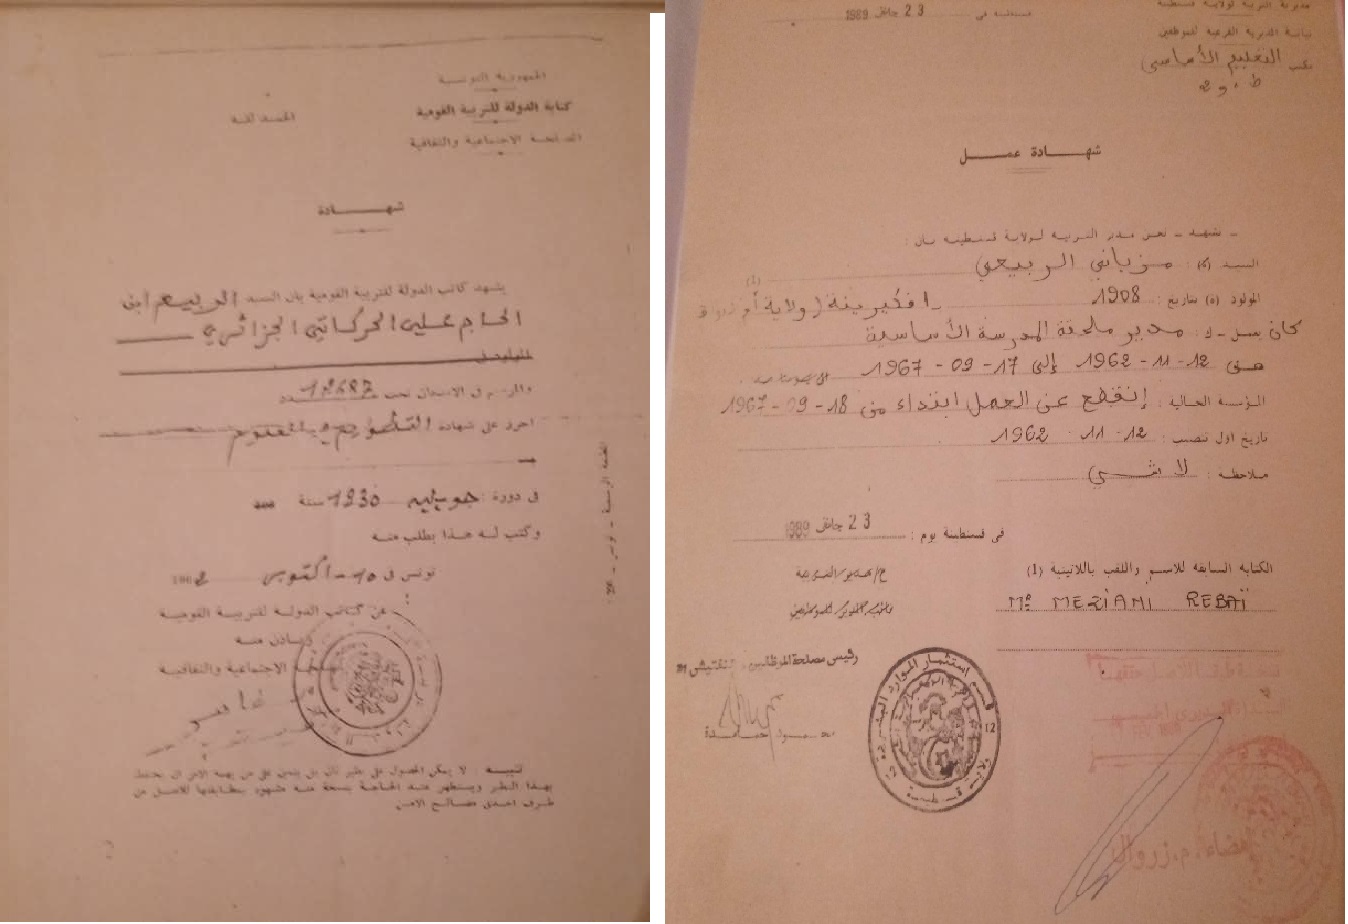 الجمهورية التونسية
كتابة الدولة للتربية القومية
المصلحة الاجتماعية والثقافية
الحمد لله
شهـــادة
يشهد كاتب الدولة للتربية القومية بان السيد الربيع ابن
الحاج علي الحركاتي الجزائري
والمرسم في الامتحان تحت عدد 12687
احرز على شهادة التطويع في العلوم
في دورة : جويليه 1930 سنة
وكتب له هذا بطلب منه
تونس في 10 اكتوبر 1962
عن كاتب الدولة للتربية القومية
وباذن منه
المصلحة الاجتماعية والثقافية
تنبيه : لا يمكن الحصول على نظير ثان
بهذا النظير ويستظهر عند الحاجة بنسخة منه مشهود بمطابقتها للاصل من
طرف احدى مصالح الامن
مديرية التربية لولاية قسنطينة
نيابة المديرية الفرعية للموظفين
مكتب التعليم الأساسي
قسنطينة في 23 جانفي 1989
شهـــادة عمـــل
ـ نشهد ـ نحن مدير التربية لولاية قسنطينة بان :
السيد (ة) : مزياني الربيعي (1)
المولود (ة) بتاريخ : 1908 بـ افكيرينة (ولاية أم البواقي
كان يعمل ـ لا : مدير ملحقة المدرسة الأساسية
من 12 - 11 - 1962 إلى 17 - 09 - 1967
المؤسسة الحالية : إنقطع عن العمل ابتداء من 18 - 09 - 1967
تاريخ اول تنصيب : 12 - 11 - 1962
ملاحظة : لا شيء
في قسنطينة يوم : 23 جانفي 1989
الكتابة السابقة للاسم واللقب باللاتينية (1)
Mr MEZIANI REBAÏ
ع/مدير التربية
رئيس مصلحة الموظفين والتفتيش
قسم استثمار الموارد البشرية
ولاية قسنطينة
12
إمضاء م.زروال